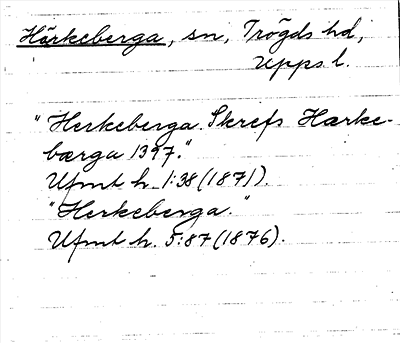 Härkeberga, sn, Trögds hd,
Upps. l.
"Herkeberga. Skrefs Harke-
berga 1397."
Ufmt h. 1:38 (1871).
"Herkeberga."
Ufmt h. 5:87 (1876).